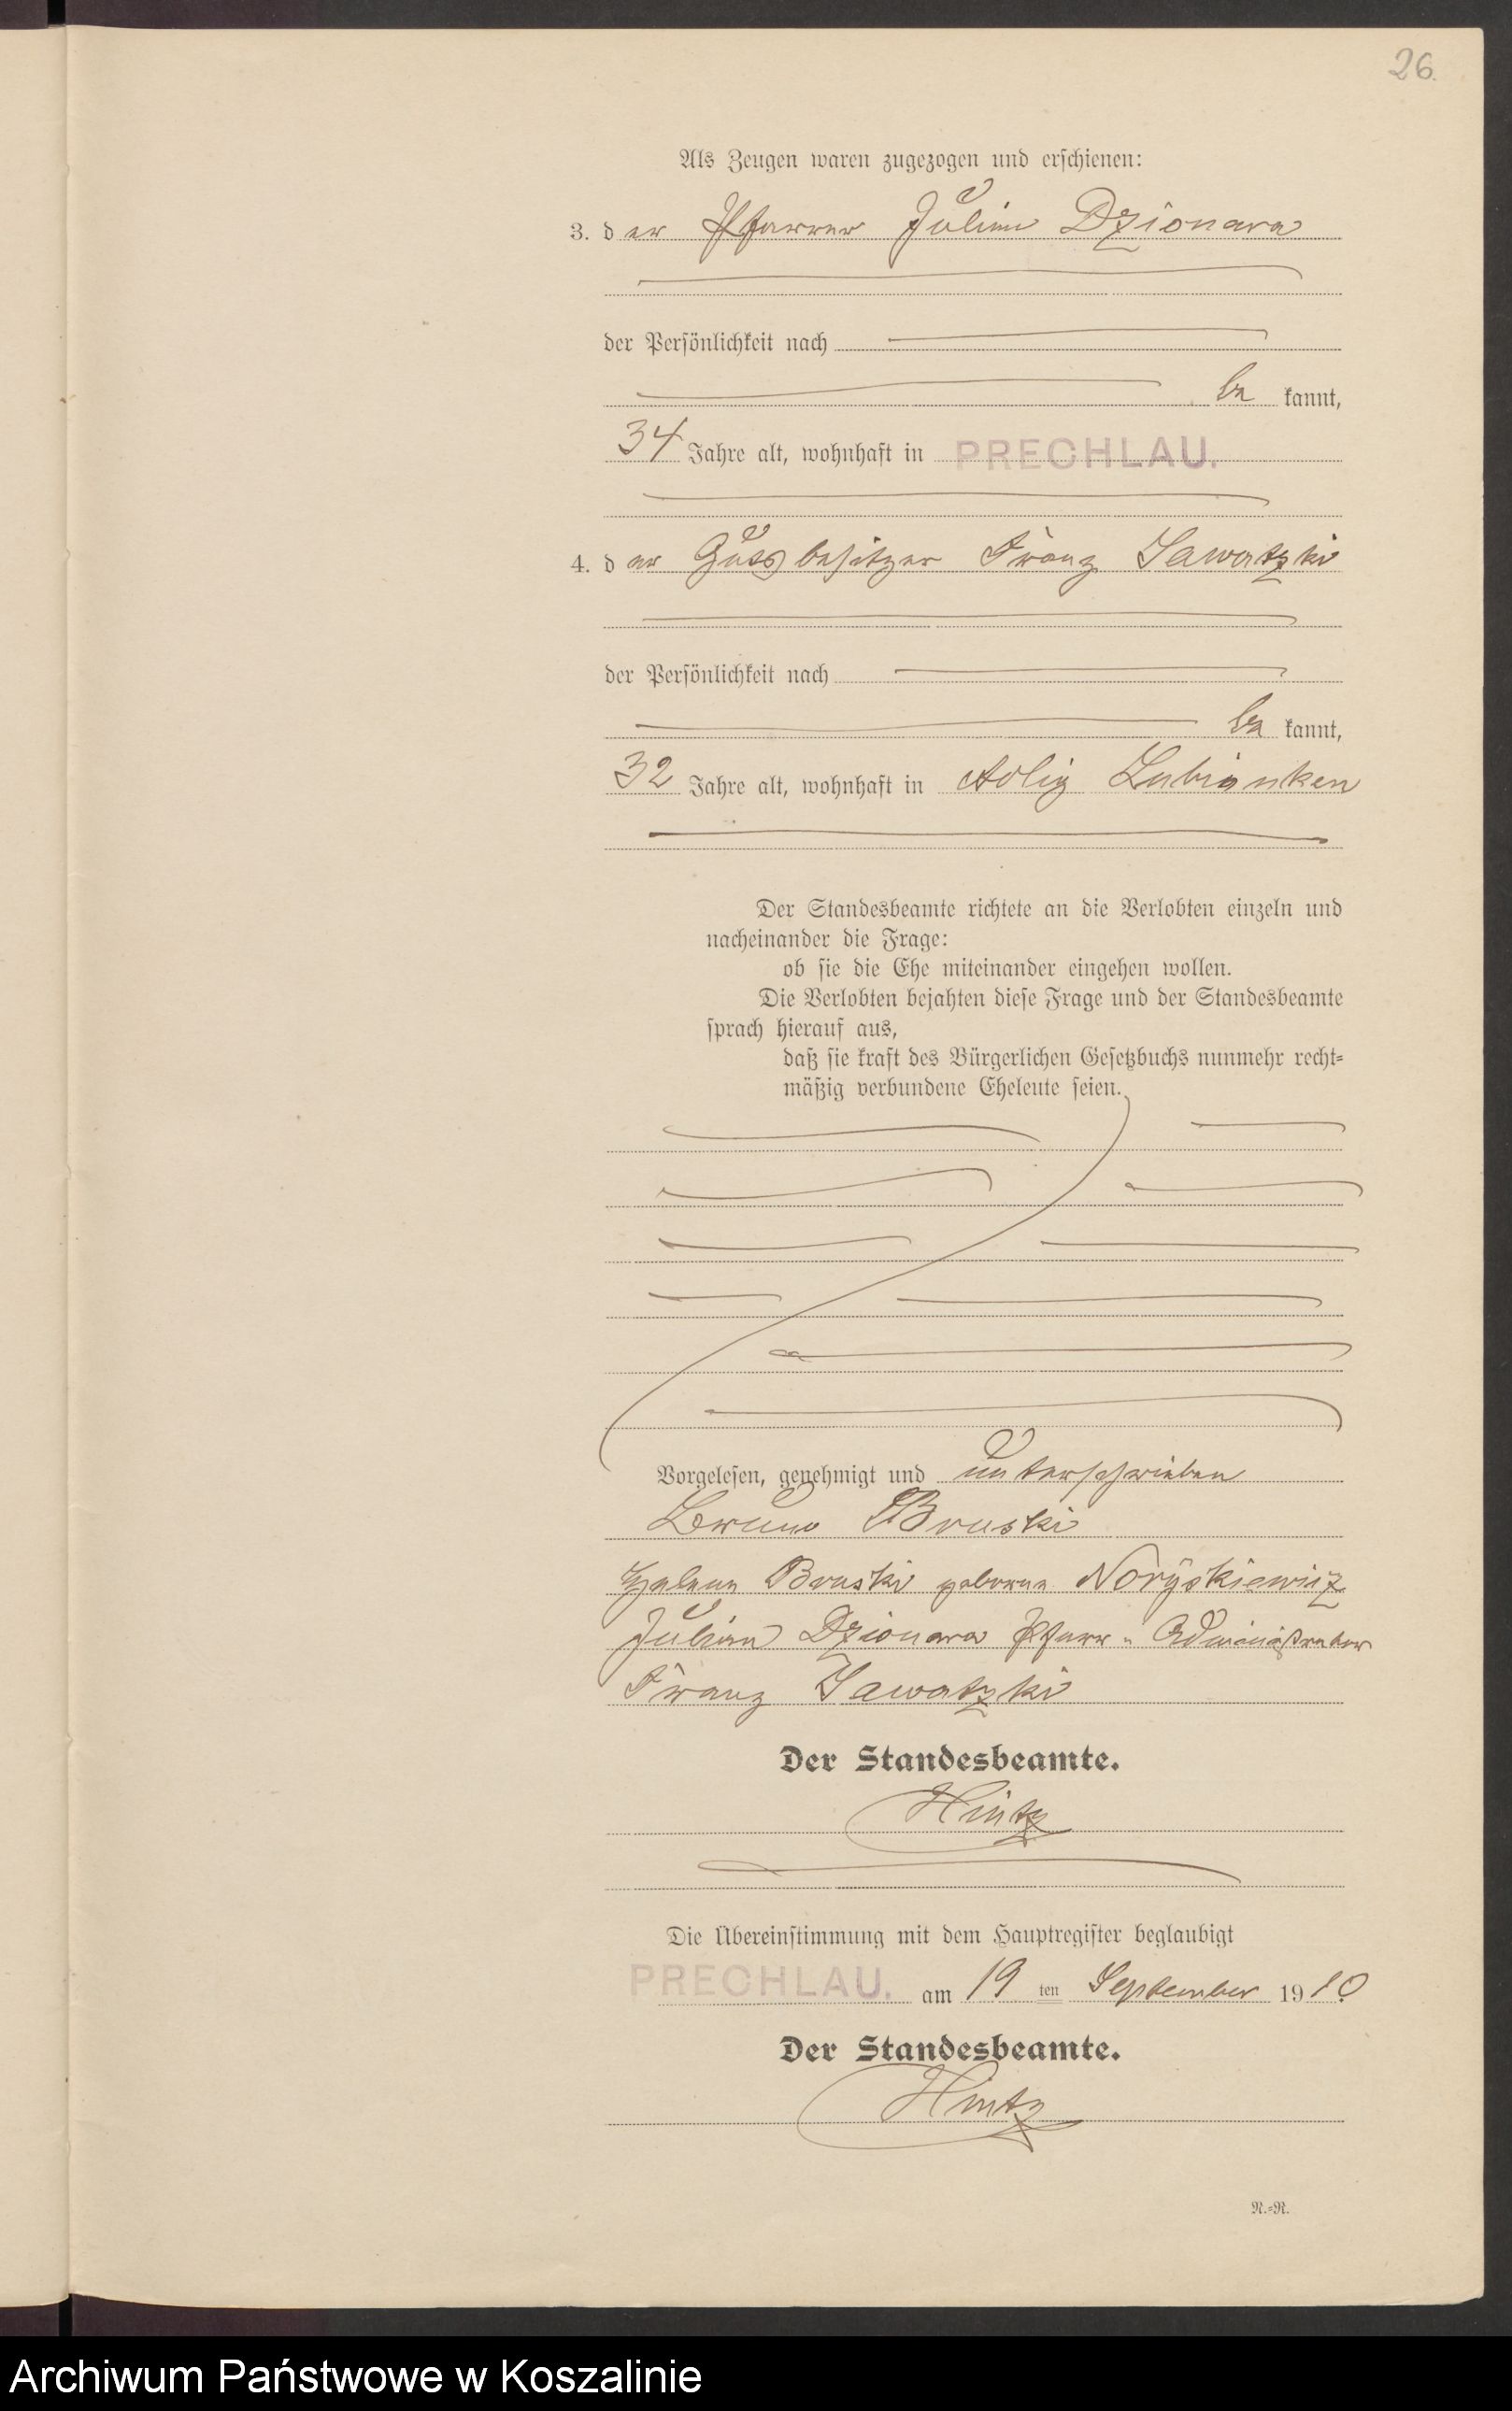 26.
Als Zeugen waren zugezogen und erschienen:
3. der Pfarrer Julian Dzionara
der Persönlichkeit nach
be kannt,
34 Jahre alt, wohnhaft in PRECHLAU.
4. der Gutsbesitzer Franz Sawatzki
der Persönlichkeit nach
be kannt,
32 Jahre alt, wohnhaft in Adlig Lubianken
Der Standesbeamte richtete an die Verlobten einzeln und
nacheinander die Frage:
ob sie die Ehe miteinander eingehen wollen.
Die Verlobten bejahten diese Frage und der Standesbeamte
sprach hierauf aus,
daß sie kraft des Bürgerlichen Gesetzbuchs nunmehr recht-
mäßig verbundene Eheleute seien.
Vorgelesen, genehmigt und unterschrieben
Bruno Bruski
Helene Bruski geborene Noryskiewicz
Julian Dzionara Pfarr- Administrator
Franz Sawatzki
Der Standesbeamte.
Hintz
Die Übereinstimmung mit dem Hauptregister beglaubigt
PRECHLAU. am 19 ten September 1910
Der Standesbeamte.
Hintz
N.-R.
Archiwum Państwowe w Koszalinie